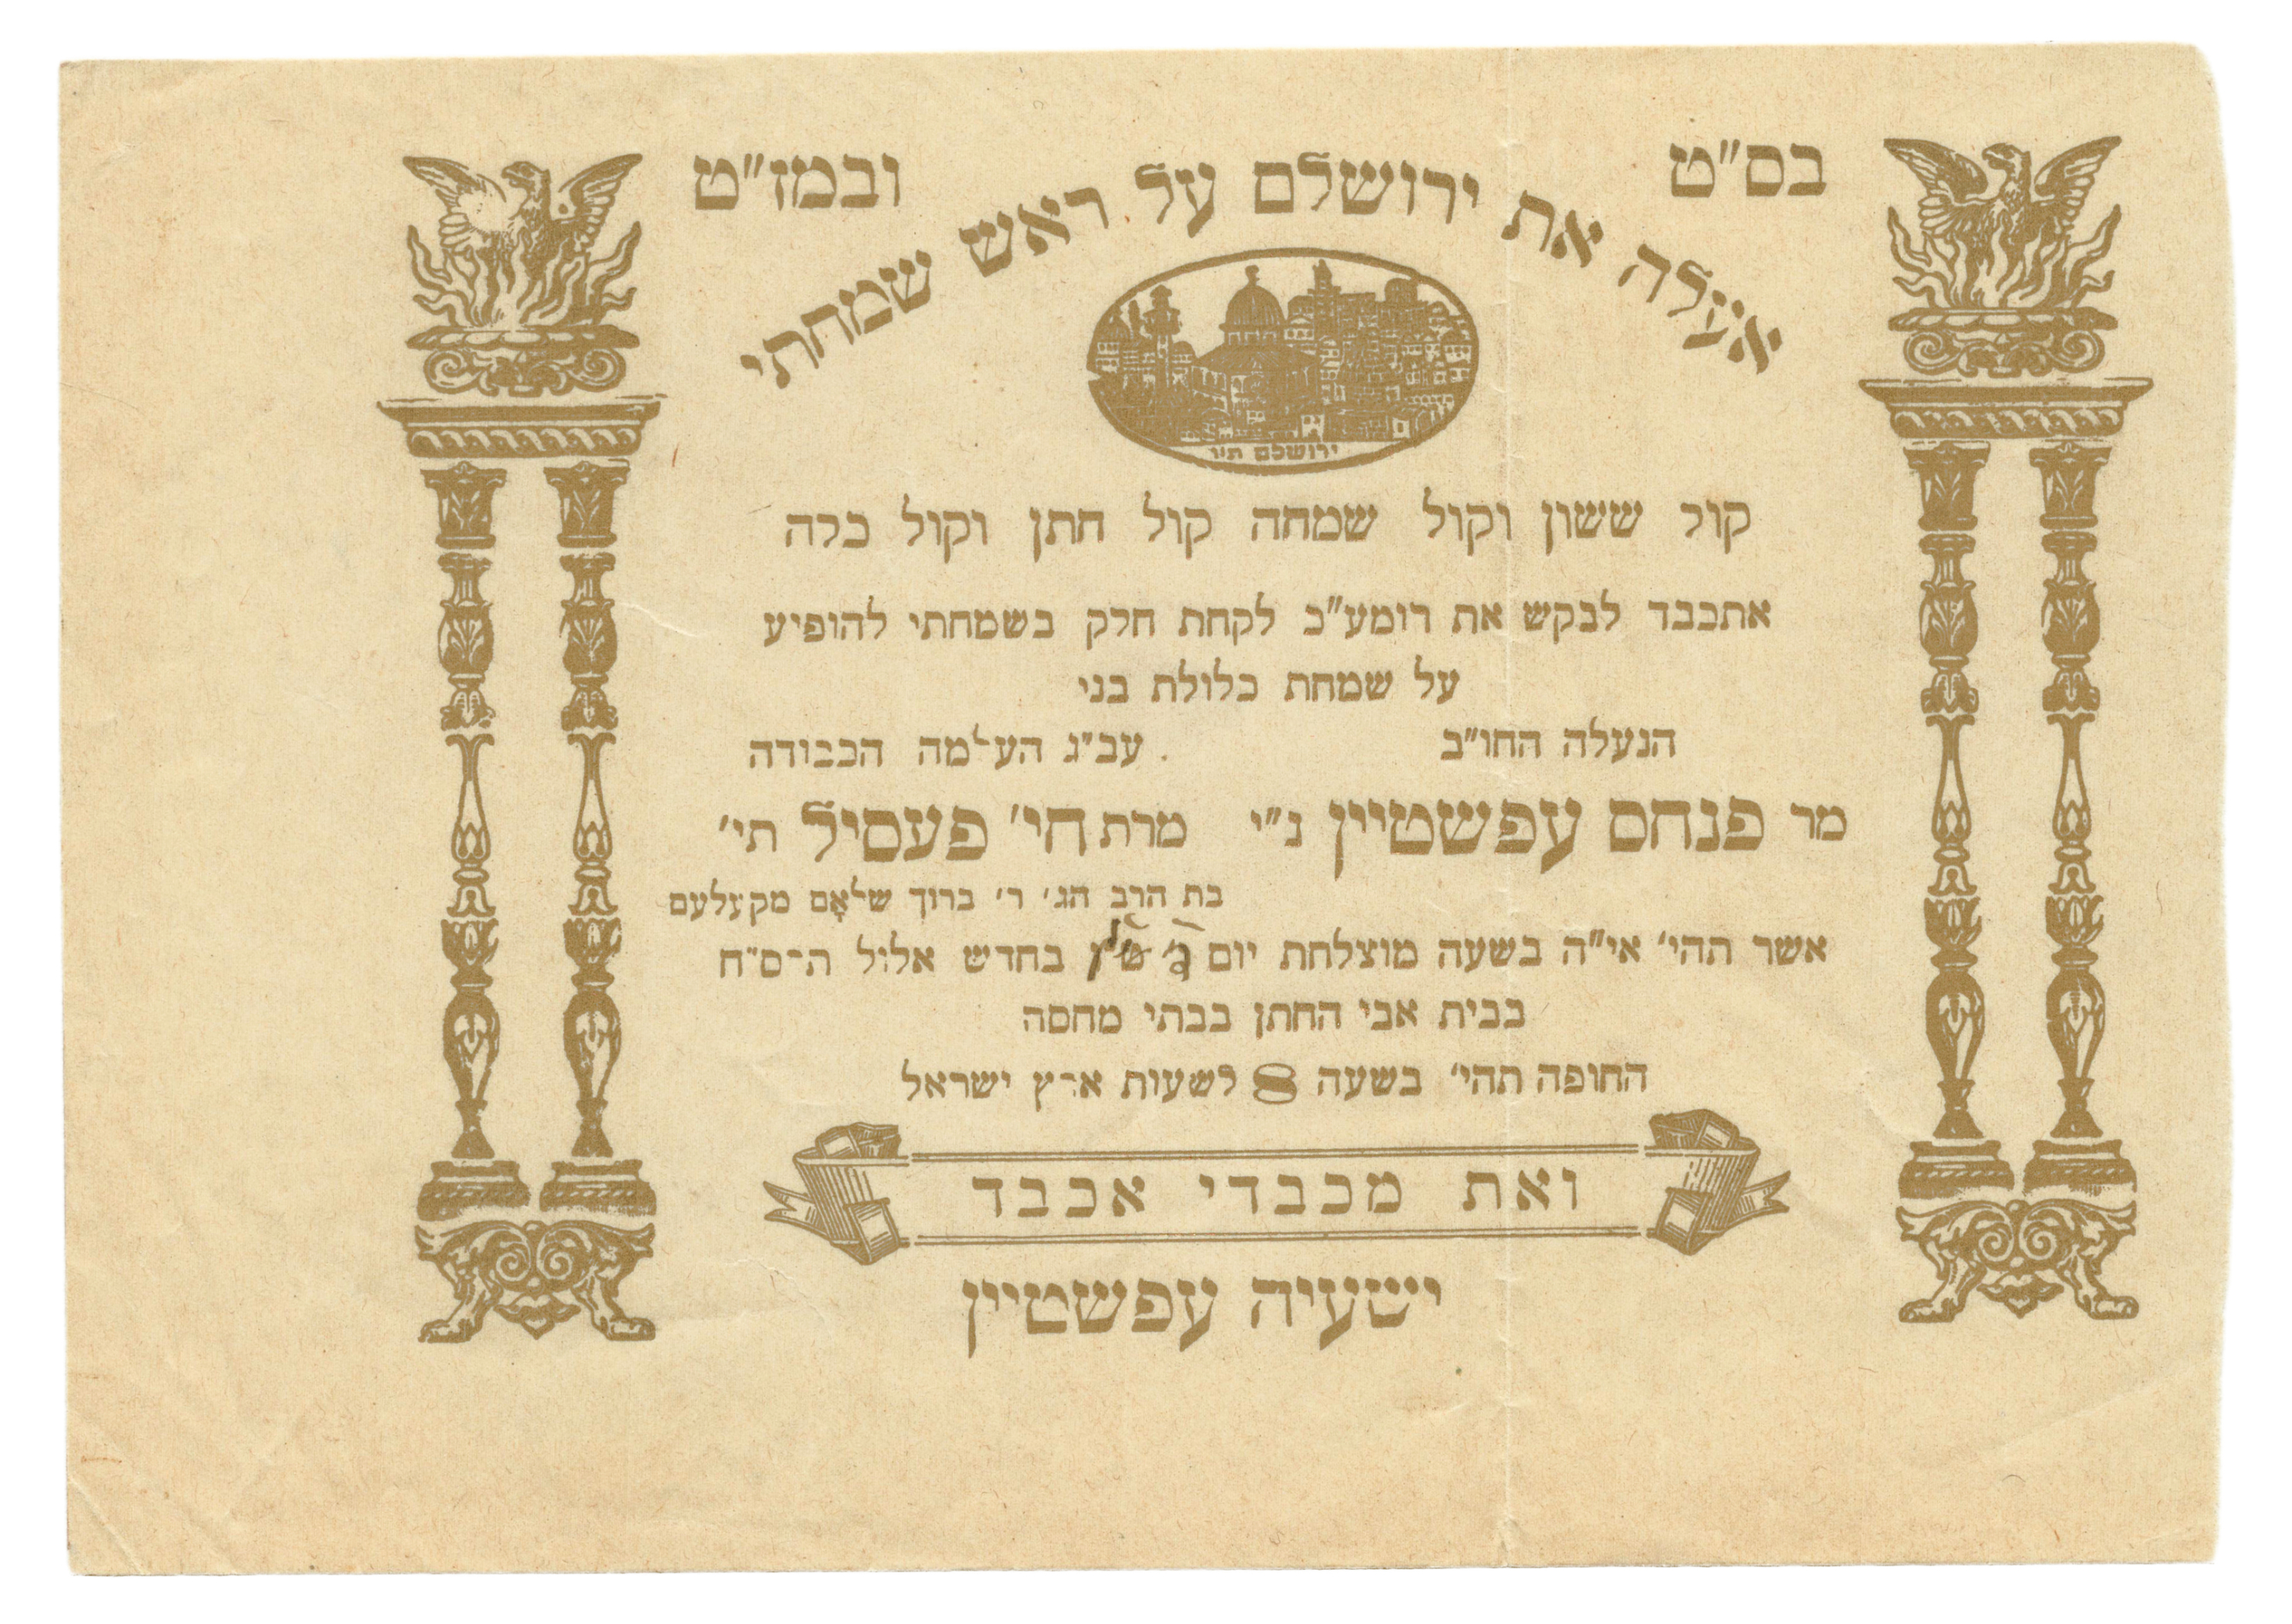 בס"ט
ובמז"ט
אעלה את ירושלם על ראש שמחתי
ירושלם ת"ו
קול ששון וקול שמחה קול חתן וקול כלה
אתכבד לבקש את רומע"כ לקחת חלק בשמחתי להופיע
על שמחת כלולת בני
הנעלה החו"ב
עב"ג העלמה הכבודה
מר פנחם עפשטיין נ"י
מרת חי' פעסיל תי'
בת הרב הג' ר' ברוך שלאָם מקעלעם
אשר תהי' אי"ה בשעה מוצלחת יום בחדש אלול ה־ס"ח
בבית אבי החתן בבתי מחסה
החופה תהי' בשעה 8 לשעות ארץ ישראל
ואת מכבדי אכבד
ישעיה עפשטיין